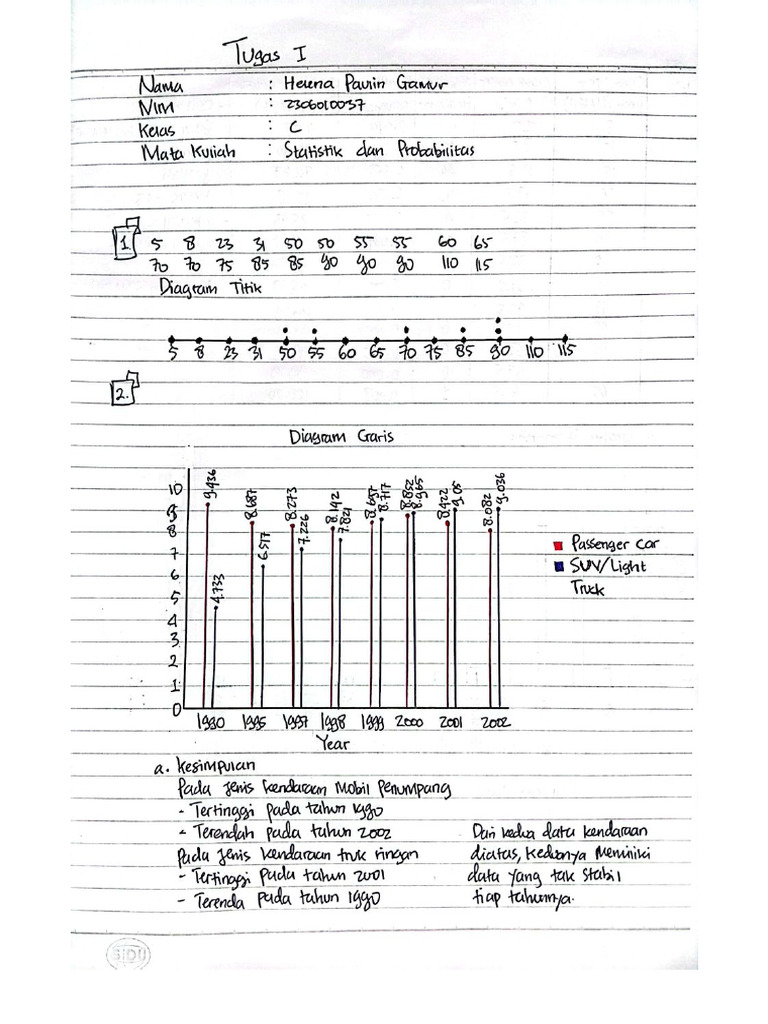 Tugas I
Nama : Helena Paurin Gamur
NIM : 2306010037
Kelas : C
Mata Kuliah : Statistik dan Probabilitas
1. 5 8 23 31 50 50 55 55 60 65
70 70 75 85 85 90 90 90 110 115
Diagram Titik
5 8 23 31 50 55 60 65 70 75 85 90 110 115
2.
Diagram Garis
10
9
8
7
6
5
4
3
2
1
0
9.436 4.733 8.687 6.517 8.273 7.226 8.142 7.821 8.697 8.717 8.852 8.965 8.422 9.05 8.082 9.036
Passenger car
SUV/Light
Truck
1990 1995 1997 1998 1999 2000 2001 2002
Year
a. Kesimpulan
Pada jenis kendaraan Mobil Penumpang
- Tertinggi pada tahun 1990
- Terendah pada tahun 2002
Pada jenis kendaraan truk ringan
- Tertinggi pada tahun 2001
- Terenda pada tahun 1990
Dari kedua data kendaraan
diatas, keduanya memiliki
data yang tak stabil
tiap tahunnya.
SIDU